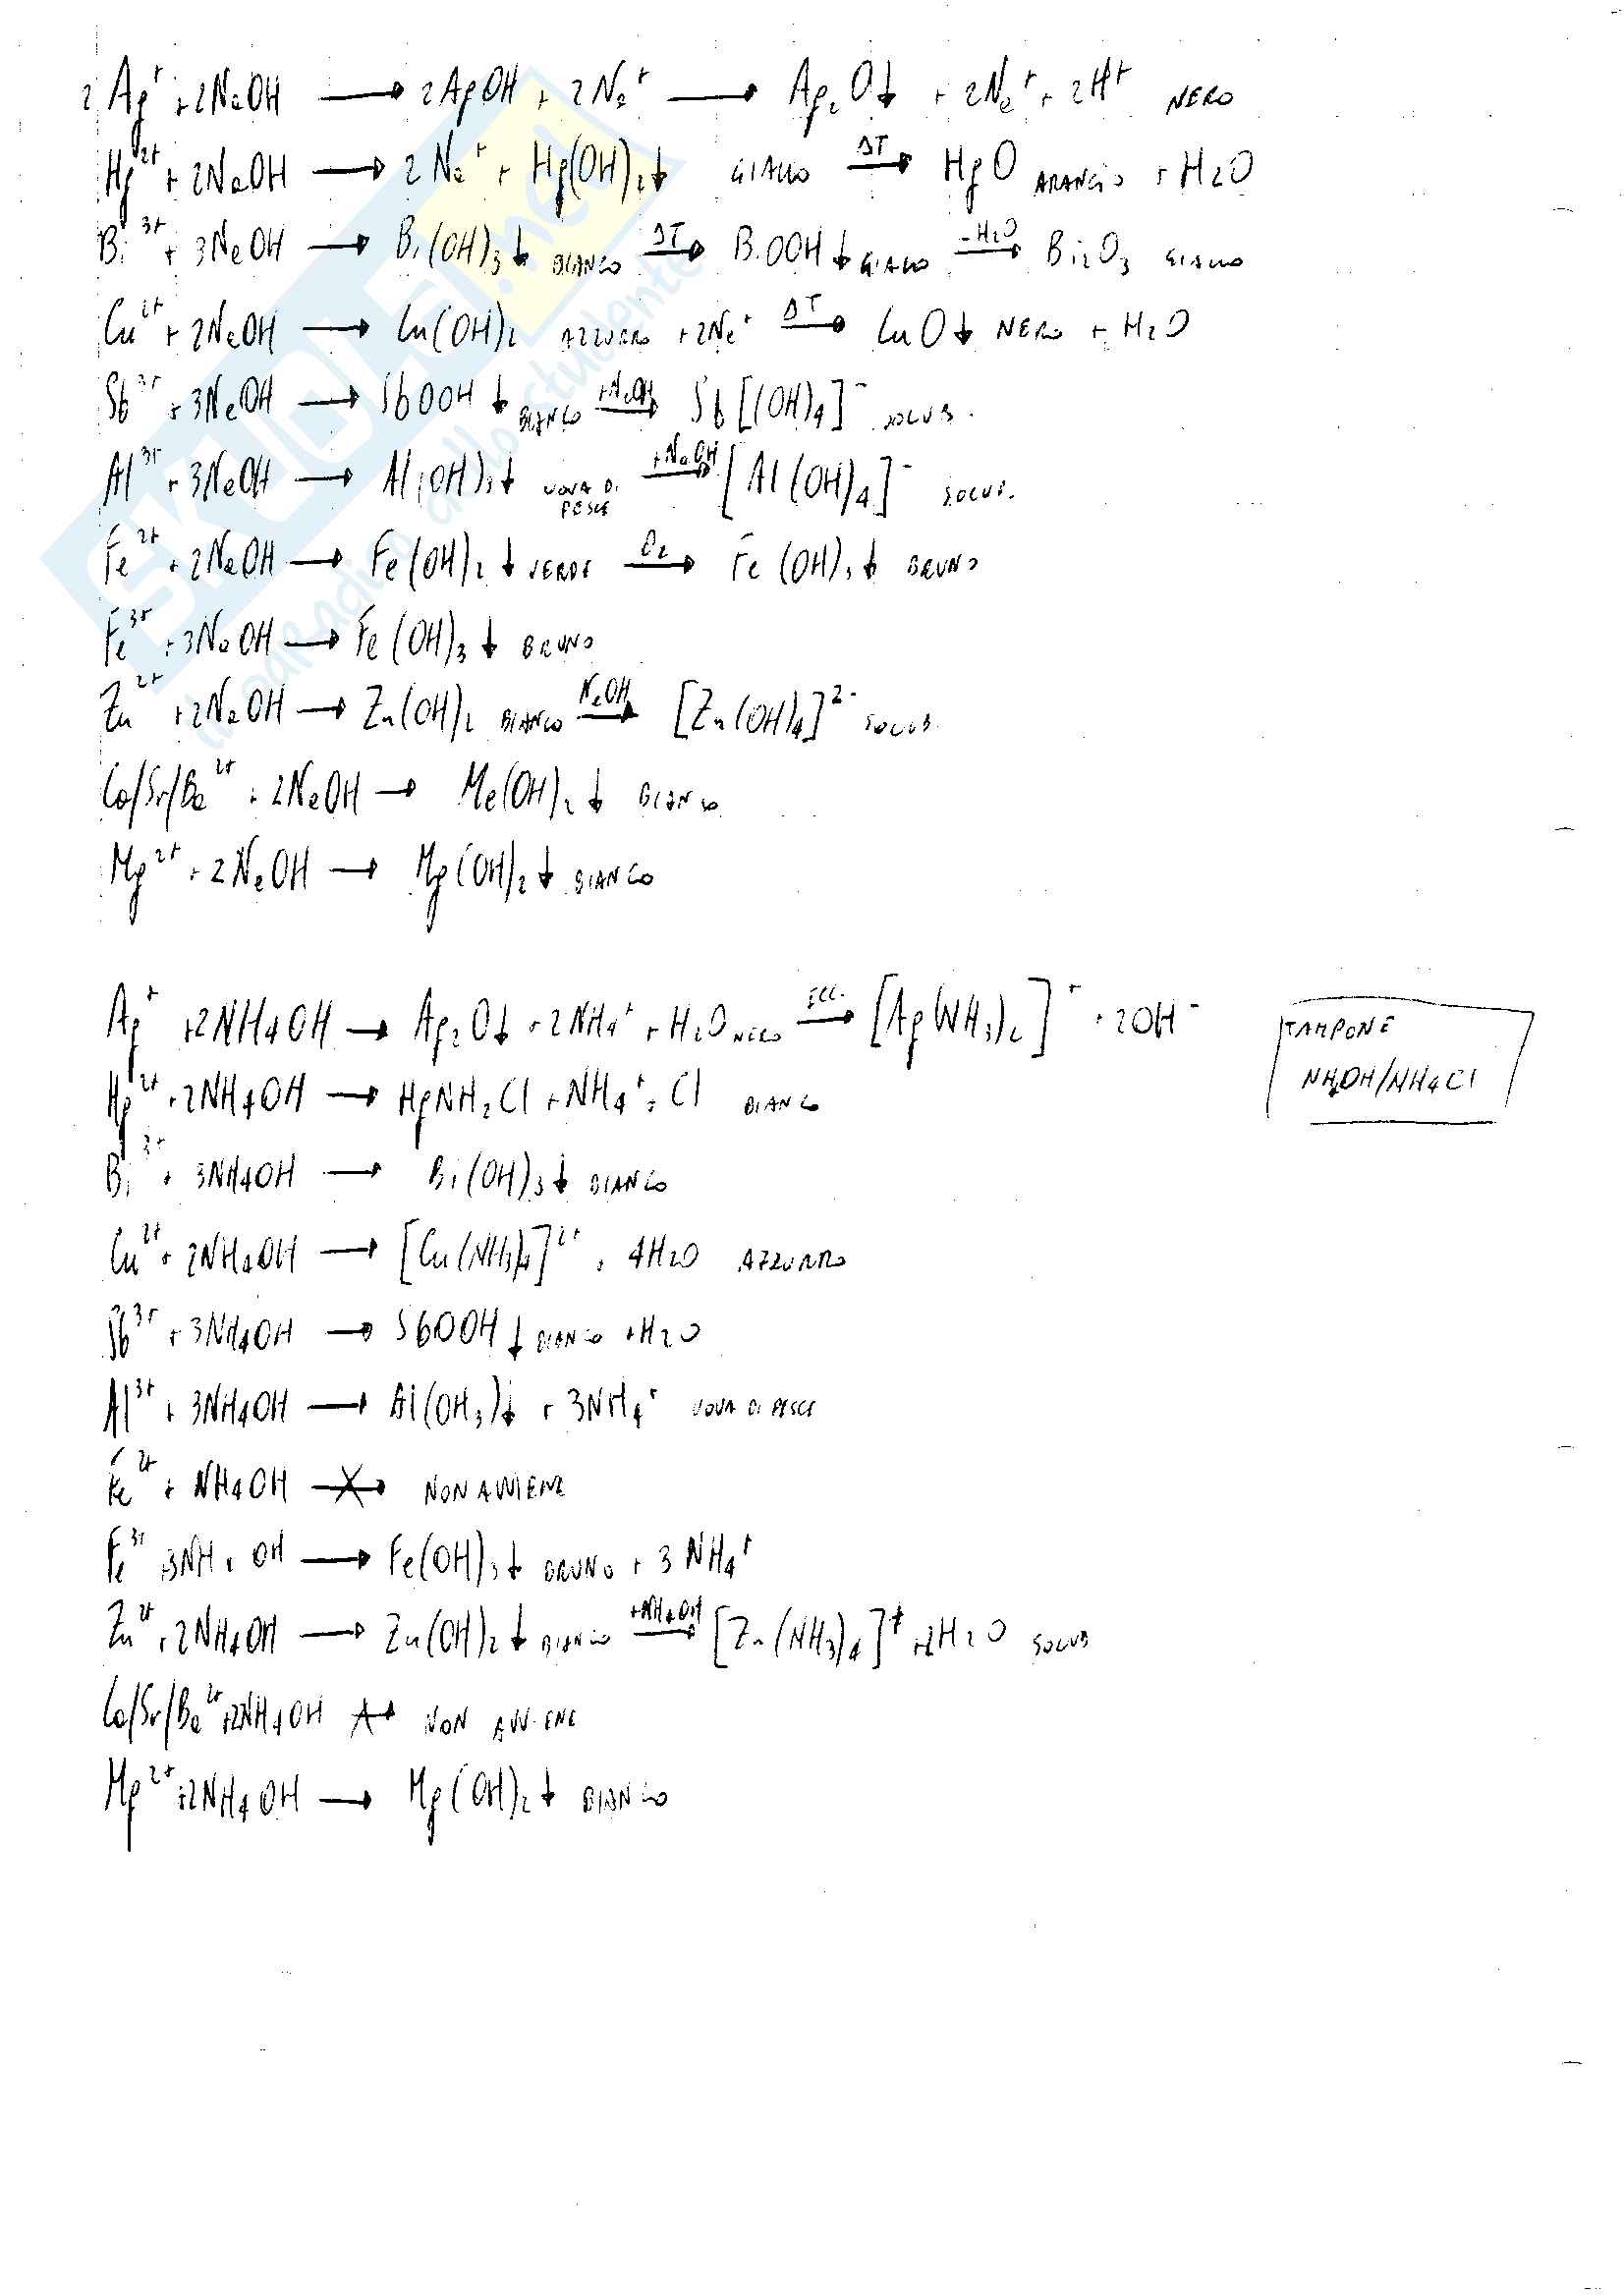 2Ag⁺ + 2NaOH → 2AgOH + 2Na⁺ → Ag₂O↓ + 2Na⁺ + 2H⁺ NERO
Hg²⁺ + 2NaOH → 2Na⁺ + Hg(OH)₂↓ GIALLO ΔT→ HgO ARANCIO + H₂O
Bi³⁺ + 3NaOH → Bi(OH)₃↓ BIANCO ΔT→ BiOOH↓ GIALLO -H₂O→ Bi₂O₃ GIALLO
Cu²⁺ + 2NaOH → Cu(OH)₂ AZZURRO + 2Na⁺ ΔT→ CuO↓ NERO + H₂O
Sb³⁺ + 3NaOH → SbOOH↓ BIANCO +NaOH→ Sb[(OH)₄]⁻ SOLUB.
Al³⁺ + 3NaOH → Al(OH)₃↓ UOVA DI PESCE +NaOH→ [Al(OH)₄]⁻ SOLUB.
Fe²⁺ + 2NaOH → Fe(OH)₂↓ VERDE O₂→ Fe(OH)₃↓ BRUNO
Fe³⁺ + 3NaOH → Fe(OH)₃↓ BRUNO
Zn²⁺ + 2NaOH → Zn(OH)₂ BIANCO NaOH→ [Zn(OH)₄]²⁻ SOLUB.
Ca/Sr/Ba²⁺ + 2NaOH → Me(OH)₂↓ BIANCO
Mg²⁺ + 2NaOH → Mg(OH)₂↓ BIANCO
Ag⁺ + 2NH₄OH → Ag₂O↓ + 2NH₄⁺ + H₂O NERO ECC.→ [Ag(NH₃)₂]⁺ + 2OH⁻
TAMPONE
NH₄OH/NH₄Cl
Hg²⁺ + 2NH₄OH → HgNH₂Cl + NH₄⁺ + Cl BIANCO
Bi³⁺ + 3NH₄OH → Bi(OH)₃↓ BIANCO
Cu²⁺ + 2NH₄OH → [Cu(NH₃)₄]²⁺ + 4H₂O AZZURRO
Sb³⁺ + 3NH₄OH → SbOOH↓ BIANCO + H₂O
Al³⁺ + 3NH₄OH → Al(OH₃)↓ + 3NH₄⁺ UOVA DI PESCE
Fe²⁺ + NH₄OH -X→ NON AVVIENE
Fe³⁺ + 3NH₄OH → Fe(OH)₃↓ BRUNO + 3NH₄⁺
Zn²⁺ + 2NH₄OH → Zn(OH)₂↓ BIANCO +NH₄OH→ [Zn(NH₃)₄]⁺ + 2H₂O SOLUB
Ca/Sr/Ba²⁺ + 2NH₄OH -X→ NON AVVIENE
Mg²⁺ + 2NH₄OH → Mg(OH)₂↓ BIANCO
SKUOLA.net
il paradiso dello studente